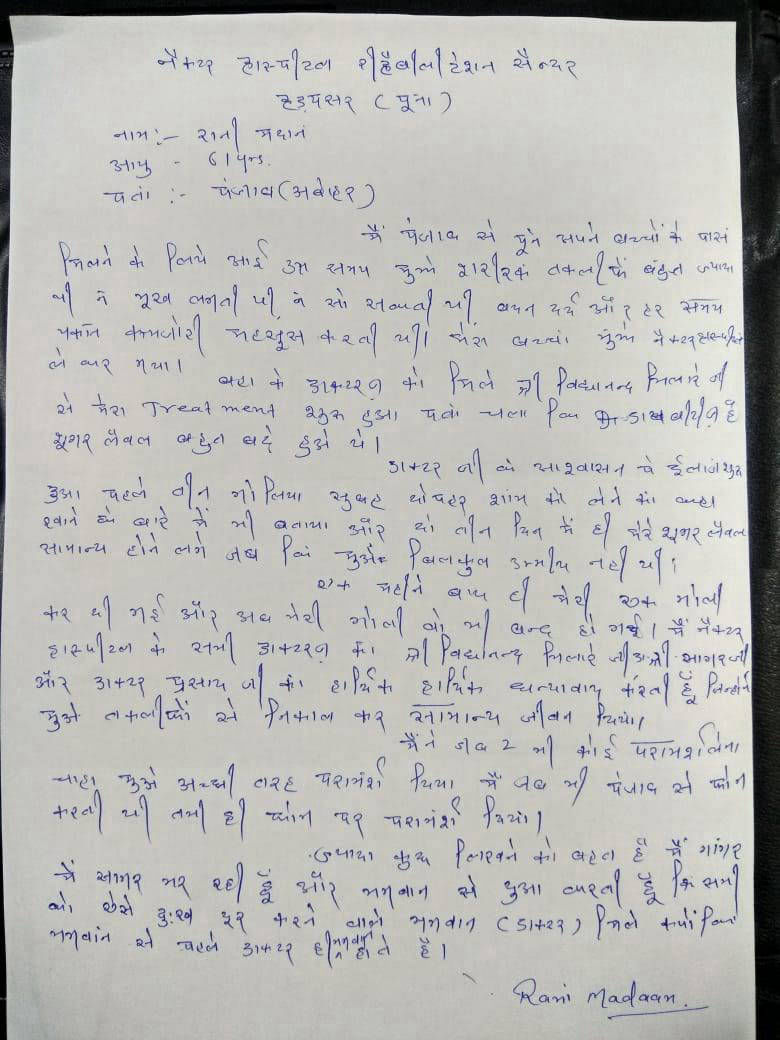 नैक्टर हास्पीटल रीहैबीलीटेशन सैन्टर
हडपसर (पूना)
नाम :- रानी मदान
आयु - 61 yrs.
पता :- पंजाब (अबोहर)
मैं पंजाब से पूने अपने बच्चों के पास
मिलने के लिये आई उस समय मुझे शारीरक तकलीफें बहुत ज्यादा
थी न भूख लगती थी न सो सकती थी बदन दर्द और हर समय
थकान कमजोरी महसूस करती थी। मेरा बच्चा मुझे नैक्टर हास्पीटल
ले कर गया।
वहा के डाक्टरज़ को मिले श्री विद्यानन्द मिलारे जी
से मेरा Treatment शुरू हुआ पता चला कि डायबीटीज़ है
शूगर लैवल बहुत बढे हुऐ थे।
डाक्टर जी के आश्वासन पे ईलाज शुरू
हुआ पहले तीन गोलिया सुबह दोपहर शाम को लेने का कहा
खाने के बारे में भी बताया और दो तीन दिन में ही मेरे शूगर लैवल
सामान्य होने लगे जब कि मुझे बिलकुल उम्मीद नही थी।
एक महीने बाद ही मेरी एक गोली
कर दी गई और अब मेरी गोली वो भी बन्द हो गई। मैं नैक्टर
हास्पीटल के सभी डाक्टरज़ का श्री विद्यानन्द मिलारे जी श्री सागर जी
और डाक्टर प्रसाद जी का हार्दिक हार्दिक धन्यावाद करती हूँ जिन्होंने
मुझे तकलीफों से निकाल कर सामान्य जीवन दिया।
मैंने जब 2 भी कोई परामर्श लेना
चाहा मुझे अच्छी तरह परामर्श दिया मैं जब भी पंजाब से फोन
करती थी तभी ही फोन पर परामर्श दिया।
ज्यादा कुछ लिखने को बहुत है मैं गागर
में सागर भर रही हूँ और भगवान से दुआ करती हूँ कि सभी
को ऐसे दुःख दूर करने वाले भगवान (डाक्टर) मिले क्योंकि
भगवान से पहले डाक्टर ही भगवान होते है।
Rani Madaan